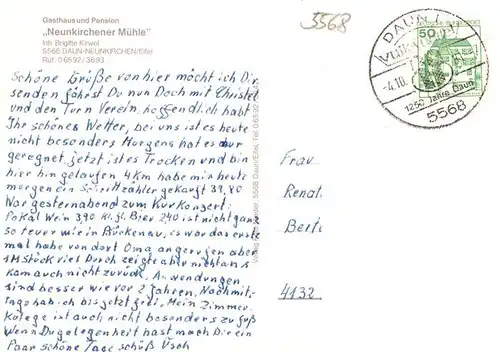 Gasthaus und Pension
„Neunkirchener Mühle"
Inh. Brigitte Kirwel
5568 DAUN-NEUNKIRCHEN/Eifel
Ruf: 0 65 92 / 36 93
5568
DAUN 1
50
-4.10.
1250 Jahre Daun
5568
Schöne Grüße von hier möcht ich Dir
senden fährst Du nun Doch mit Christel
und den Turn Verein, hoffendlich habt
Ihr schönes Wetter, bei uns ist es heute
nicht besonders Morgens hat es nur
geregnet jetzt ist es Trocken und bin
hier hin gelaufen 4 Km habe mir heute
morgen ein Schrittzähler gekauft 39,80
War gestern abend zum Kur Konzert:
Pokal Wein 3,90 Kl. gl. Bier 2,40 ist nicht ganz
so teuer wie in Brückenau, es war das erste
mal habe von dort Oma angerufen aber
1 M Stück viel Durch zeigte aber nicht an
kam auch nicht zurück. Anwendungen
sind besser wie vor 2 Jahren, Nachmit-
tags hab ich bis jetzt frei. Mein Zimmer
Kolege ist auch nicht besonders zu fuß
Wenn Du gelegenheit hast mach Dir ein
Paar schöne Tage
Frau
Renat
Berta
4132